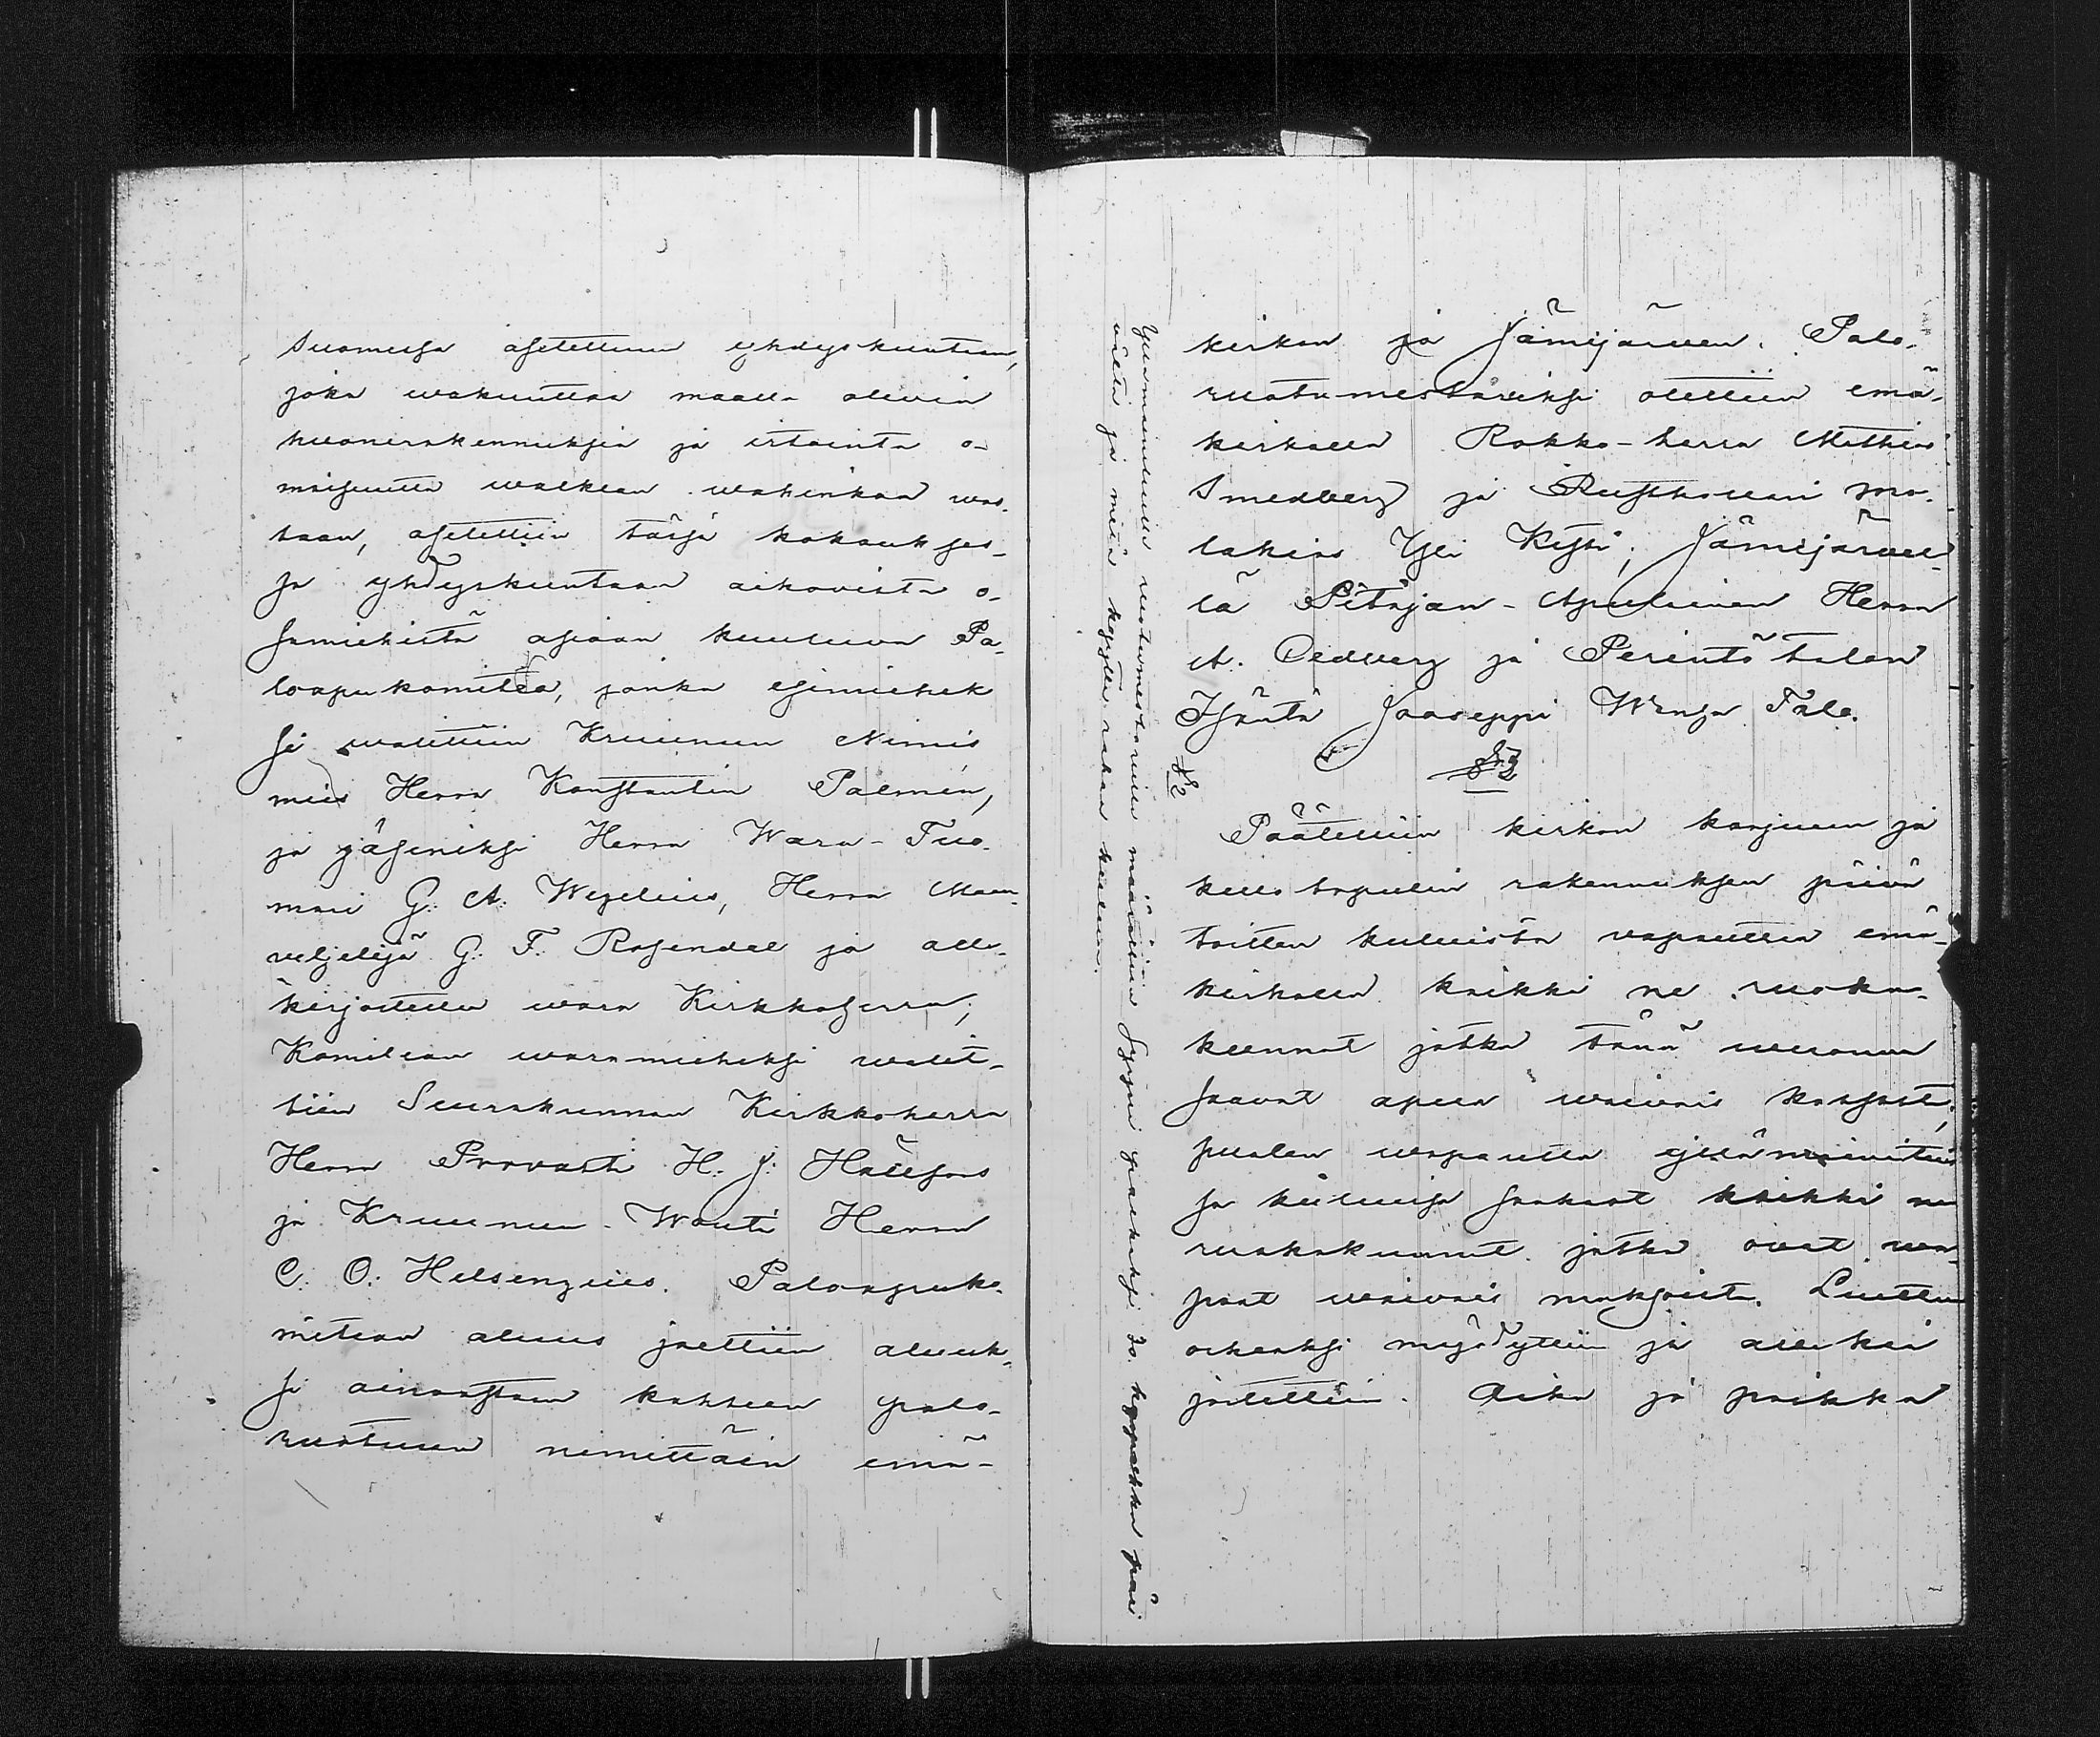 Suomessa asetettuun yhdyskuntaan,
joka wakuuttaa maalla olevia
huonerakennuksia ja irtainta o-
maisuutta walkian wahinkoa was-
taan, asetettiin tässä kokoukses-
sa yhdyskuntaan aikovista o-
samiehistä asiaan kuuluva Pa-
loapukomitea, jonka esimiehek
si walittiin Kruunun Nimis
mies Herra Konstantin Palmén,
ja jäseniksi Herra Wara-Tuo-
mari G. A. Wegelius, Herra Maan-
veljelijä G. F. Rosendal ja alle-
kirjoitettu wara Kirkkoherra;
Komitean waramieheksi walit-
tiin Seurakunnan Kirkkoherra
Herra Provasti H. J. Hällfors
ja Kruunun-Wouti Herra
C. O. Helsengius. Paloapuko-
mitean alue jaettiin aluk-
si ainoastaan kahteen palo-
ruotuun nimittäin emä-
kirkon ja Jämijärven. Palo-
ruotumestariksi otettiin emä-
kirkolla Rokko-herra Mathias
Smedberg ja Rusthollari
Yli Kysti, Jämijärvel-
lä Pitäjän-Apulainen Herra
A. Cedberg ja Perintötalon
Isäntä Jooseppi Wenga Talo.
§ 2
§ 2
Päätettiin kirkon korjuun ja
kello tapulin rakennuksen päivä
töitten kuluista vapautta emä-
kirkolla kaikki ne ruoka-
kunnat jotka tänä wuonna
saavat apua waivais kassast,
puolen wapautta yllämainituis
sa kuluissa saakoot kaikki ne
ruokakunnat jotka ovat wa-
paat waivais maksoista. Luettu
oikeaksi myödyttiin ja allekir
joitettiin. Aika ja paikka
Yllämainitulle ruotumestarille määrättiin syyni palkaksi 30 kopekkaa päi
vältä ja niin kyytti rahaa kuluu.